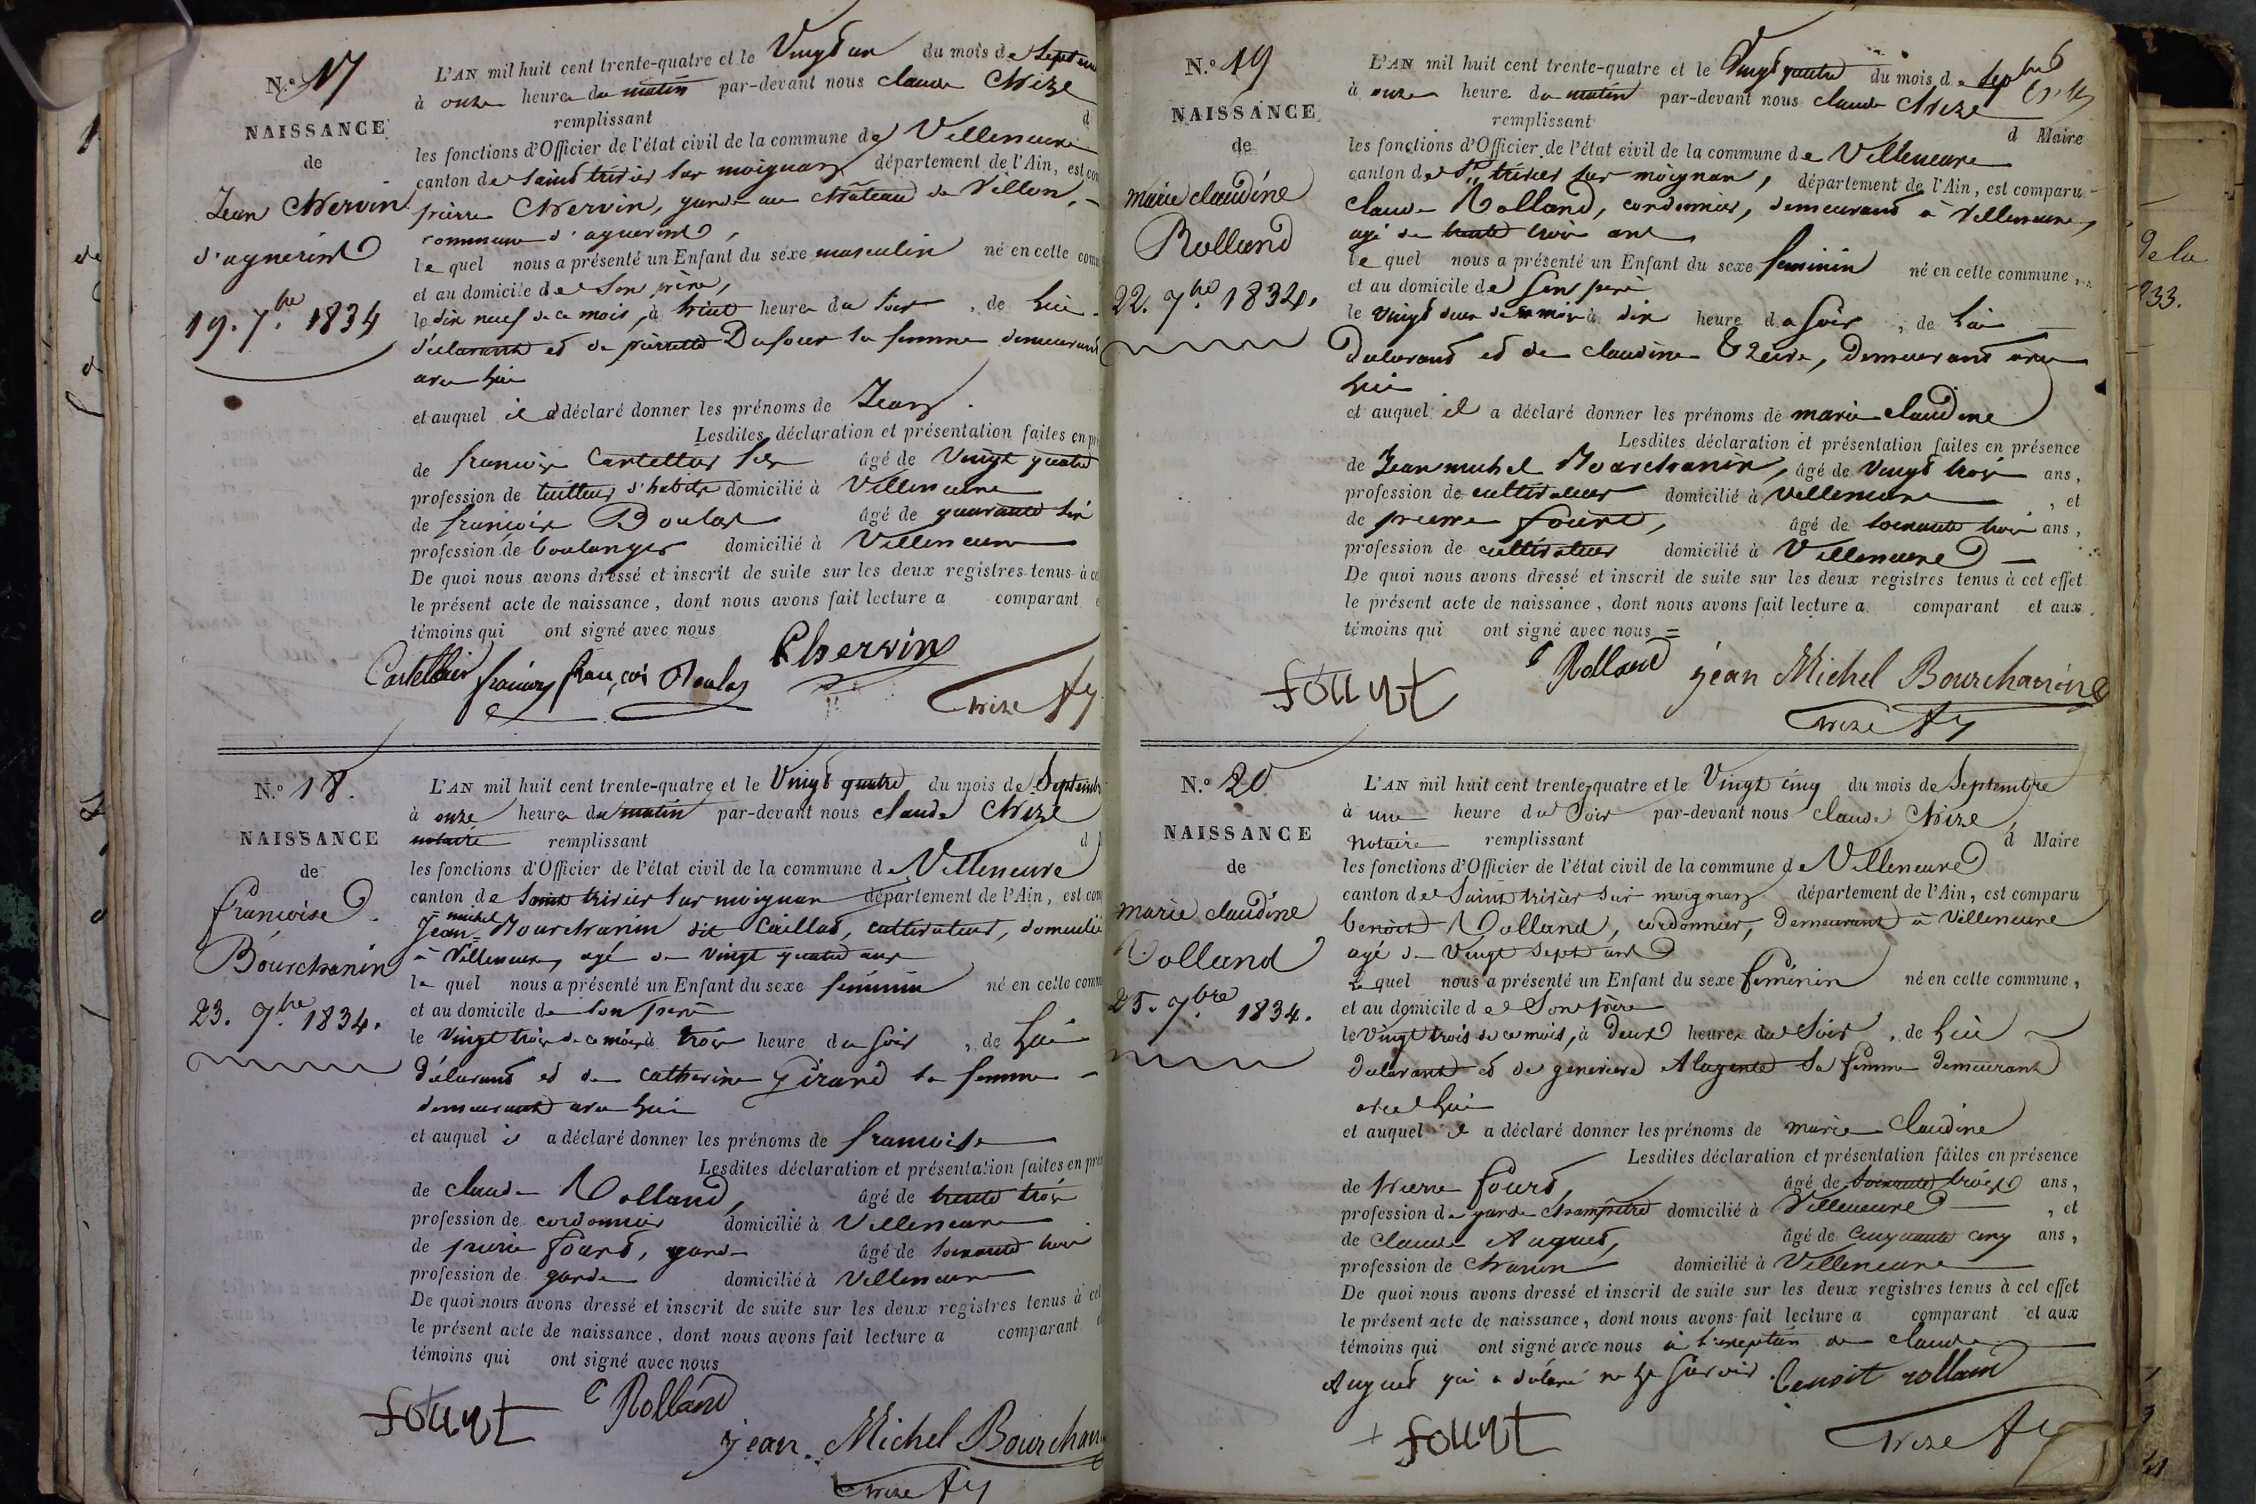 N.o 17
NAISSANCE
de
Jean Chervin
d'agnerins
19. 7.bre 1834
L'AN mil huit cent trente-quatre et le Vingt un du mois de Septem
à onze heure du matin par-devant nous claude Chize
remplissant d
les fonctions d'Officier de l'état civil de la commune de Villeneuve
canton de Saint trivier sur moignan département de l'Ain, est com
pierre Chervin, garde au château de Villon,
commune d'agnerins,
le quel nous a présenté un Enfant du sexe masculin né en cette comm
et au domicile de Son père,
le dix neuf de ce mois, à huit heure du Soir, de lui
déclarant et de pierrette Dufour sa femme demeurant
avec lui
et auquel il a déclaré donner les prénoms de Jean.
Lesdites déclaration et présentation faites en pré
de françois Cartellier fils âgé de Vingt quatre
profession de tailleur d'habits domicilié à Villeneuve
de françois Boulas âgé de quarante six
profession de boulanger domicilié à Villeneuve
De quoi nous avons dressé et inscrit de suite sur les deux registres tenus à ce
le présent acte de naissance, dont nous avons fait lecture a comparant e
témoins qui ont signé avec nous
Cartellier françois françois Boulas Chervin
Chize
N.o 18.
NAISSANCE
de
francoise
Bourchanin
23. 7.bre 1834.
L'AN mil huit cent trente-quatre et le Vingt quatre du mois de Septembr
à onze heure du matin par-devant nous claude Chize
notaire remplissant d
les fonctions d'Officier de l'état civil de la commune de Villeneuve
canton de Saint trivier sur moignan département de l'Ain, est com
Jean michel Bourchanin dit Caillat, cultivateur, domicilié
à Villeneuve, agé de vingt quatre ans
le quel nous a présenté un Enfant du sexe féminin né en cette comm
et au domicile de son père
le Vingt trois de ce mois à trois heure du soir, de lui
déclarant et de catherine Girard sa femme
demeurant avec lui
et auquel il a déclaré donner les prénoms de francoise
Lesdites déclaration et présentation faites en pré
de claude Rolland, âgé de trente trois
profession de cordonnier domicilié à Villeneuve
de pierre fourt, garde âgé de soixante trois
profession de garde domicilié à Villeneuve
De quoi nous avons dressé et inscrit de suite sur les deux registres tenus à cet
le présent acte de naissance, dont nous avons fait lecture a comparant
témoins qui ont signé avec nous
fourt C Rolland
jean Michel Bourchan
Chize
N.o 19
NAISSANCE
de
marie claudine
Rolland
22. 7.bre 1834.
L'AN mil huit cent trente-quatre et le Vingt quatre du mois de septbre
à onze heure du matin par-devant nous claude Chize
remplissant d Maire
les fonctions d'Officier de l'état civil de la commune de Villeneuve
canton de St trivier sur moignan, département de l'Ain, est comparu
claude Rolland, cordonnier, demeurant à Villeneuve,
agé de trente trois ans
le quel nous a présenté un Enfant du sexe feminin né en cette commune,
et au domicile de son père
le vingt deux de ce mois à dix heure du soir, de lui
Déclarant et de claudine, Demeurant avec
lui
et auquel il a déclaré donner les prénoms de marie claudine
Lesdites déclaration et présentation faites en présence
de Jean michel Bourchanin, âgé de vingt trois ans,
profession de cultivateur domicilié à Villeneuve, et
de pierre fourt, âgé de soixante trois ans,
profession de cultivateur domicilié à Villeneuve
De quoi nous avons dressé et inscrit de suite sur les deux registres tenus à cet effet
le présent acte de naissance, dont nous avons fait lecture a comparant et aux
témoins qui ont signé avec nous =
fourt C Rolland jean Michel Bourchanin
Chize
N.o 20
NAISSANCE
de
marie claudine
Rolland
25. 7.bre 1834.
L'AN mil huit cent trente-quatre et le Vingt cinq du mois de Septembre
à une heure du Soir par-devant nous claude Chize,
Notaire remplissant d Maire
les fonctions d'Officier de l'état civil de la commune de Villeneuve
canton de Saint trivier sur moignan département de l'Ain, est comparu
benoit Rolland, cordonnier, demeurant à Villeneuve
agé de Vingt Sept ans
le quel nous a présenté un Enfant du sexe féminin né en cette commune,
et au domicile de Son Père
le Vingt trois de ce mois, à Deux heures du Soir, de lui
Déclarant et de genevieve Alagente Sa femme demeurant
avec lui
et auquel il a déclaré donner les prénoms de marie Claudine
Lesdites déclaration et présentation faites en présence
de Pierre fourt, âgé de soixante trois ans,
profession de garde champêtre domicilié à Villeneuve, et
de Claude Augues, âgé de cinquante cinq ans,
profession de domicilié à Villeneuve
De quoi nous avons dressé et inscrit de suite sur les deux registres tenus à cet effet
le présent acte de naissance, dont nous avons fait lecture a comparant et aux
témoins qui ont signé avec nous à l'exeption de claude
Augues qui a déclaré ne le savoir. benoit rolland
+ fourt
Chize
de la
233.